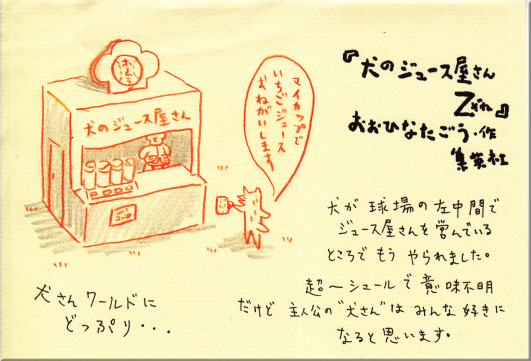 ホムラ
犬のジュース屋さん
マイカップで
いちごジュース
おねがいします
『犬のジュース屋さん
Zぜっと』
おおひなたごう・作
集英社
犬が 球場の左中間で
ジュース屋さんを営んでいる
ところでもう やられました。
超〜シュールで意味不明
だけど 主人公の“犬さん”は みんな好きに
なると思います。
犬さん ワールドに
どっぷり・・・